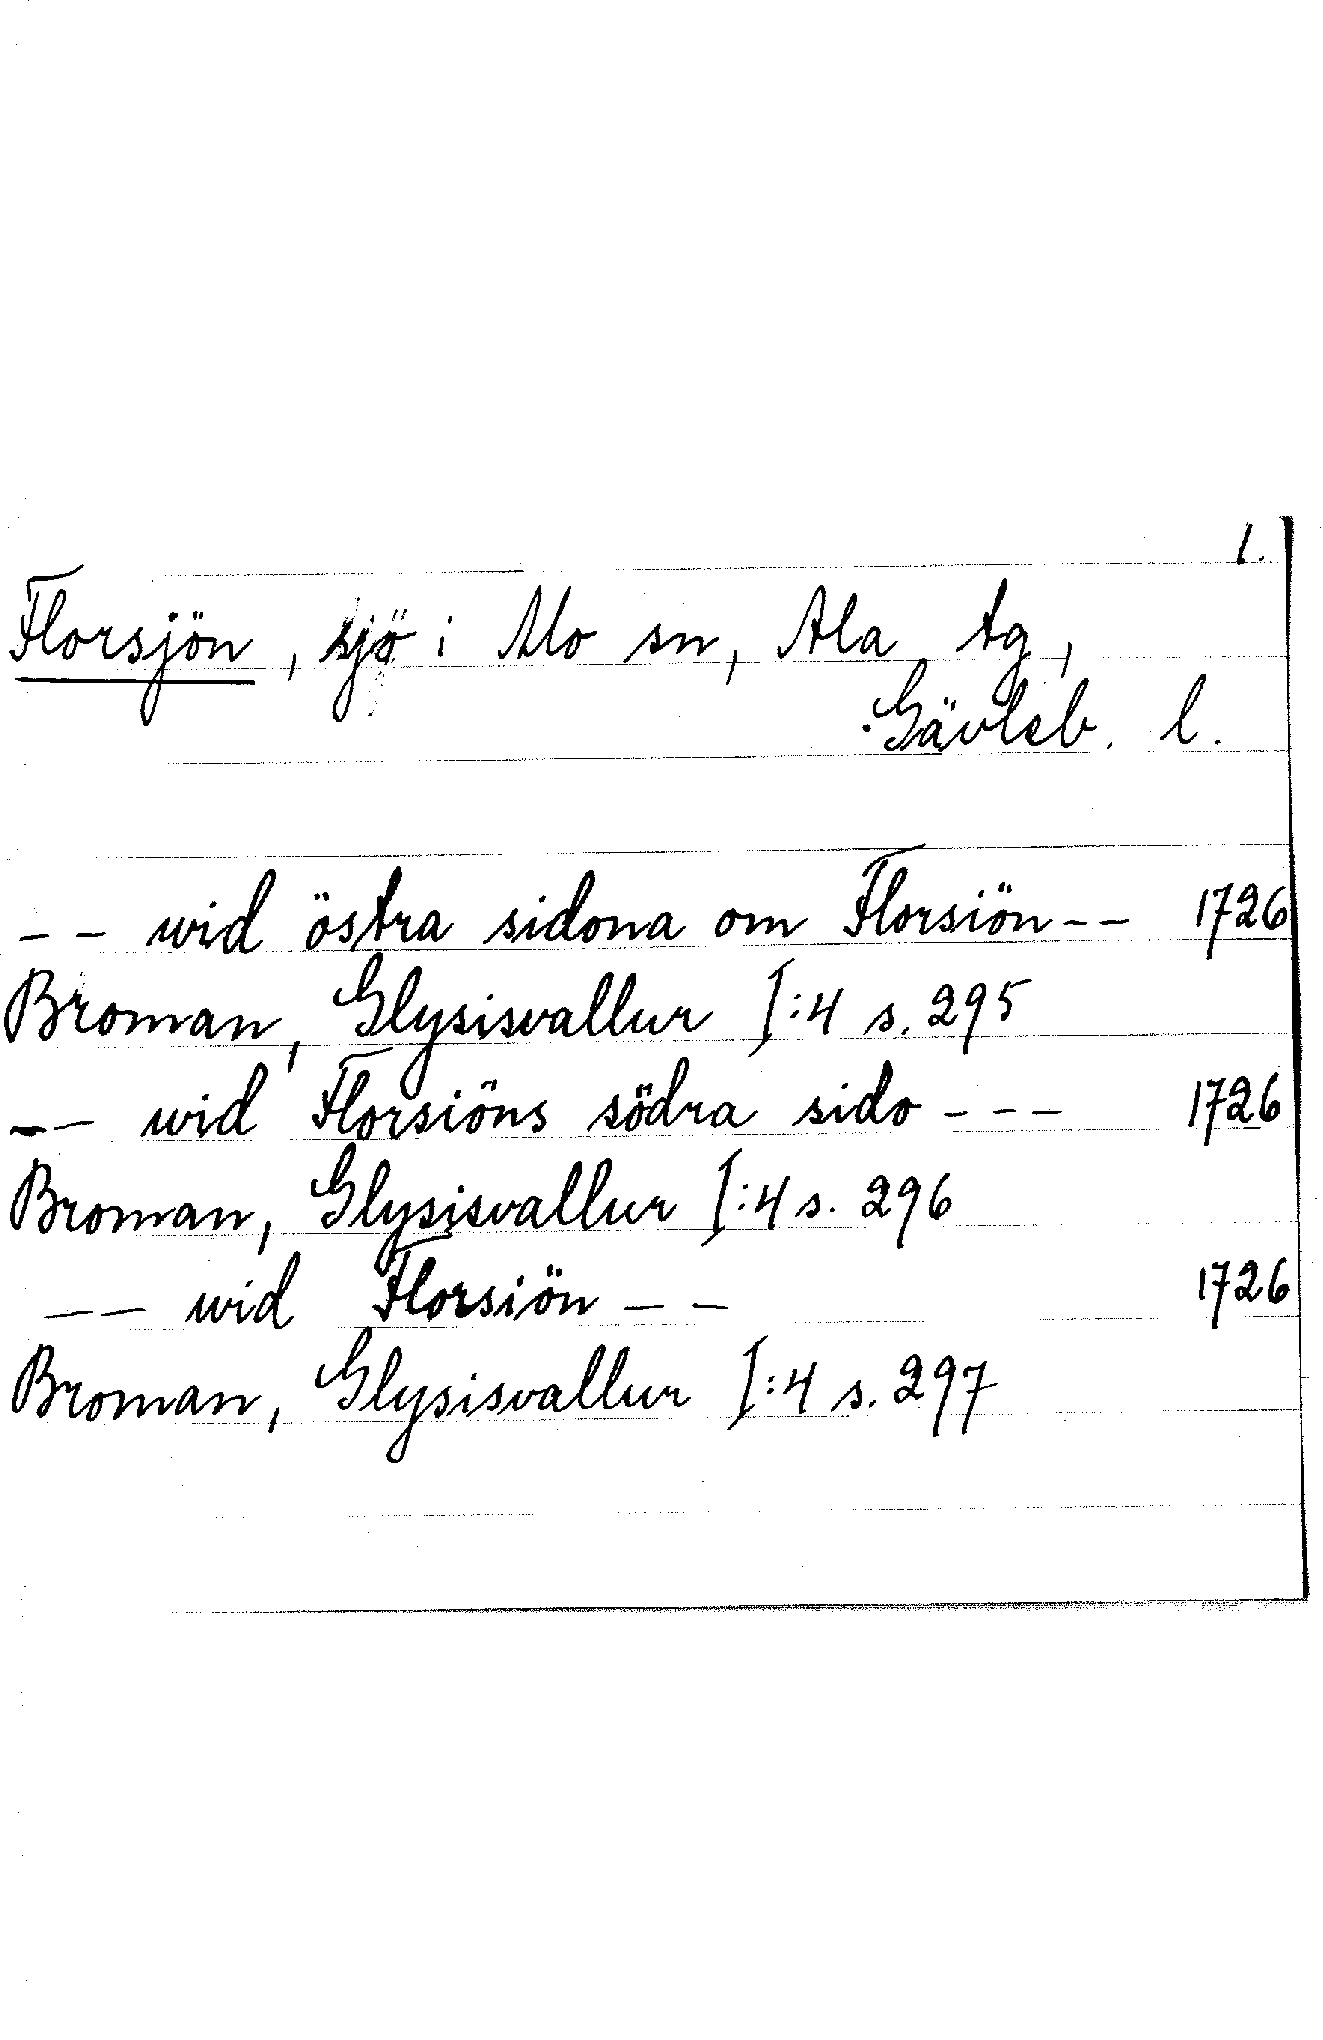 1.
Florsjön, sjö i Mo sn, Ala tg,
Gävleb. l.
-- wid östra sidona om Florsiön -- 1726
Broman, Glysisvallur I:4 s. 295
-- wid Florsiöns södra sido --- 1726
Broman, Glysisvallur I:4 s. 296
-- wid Florsiön -- 1726
Broman, Glysisvallur I:4 s. 297